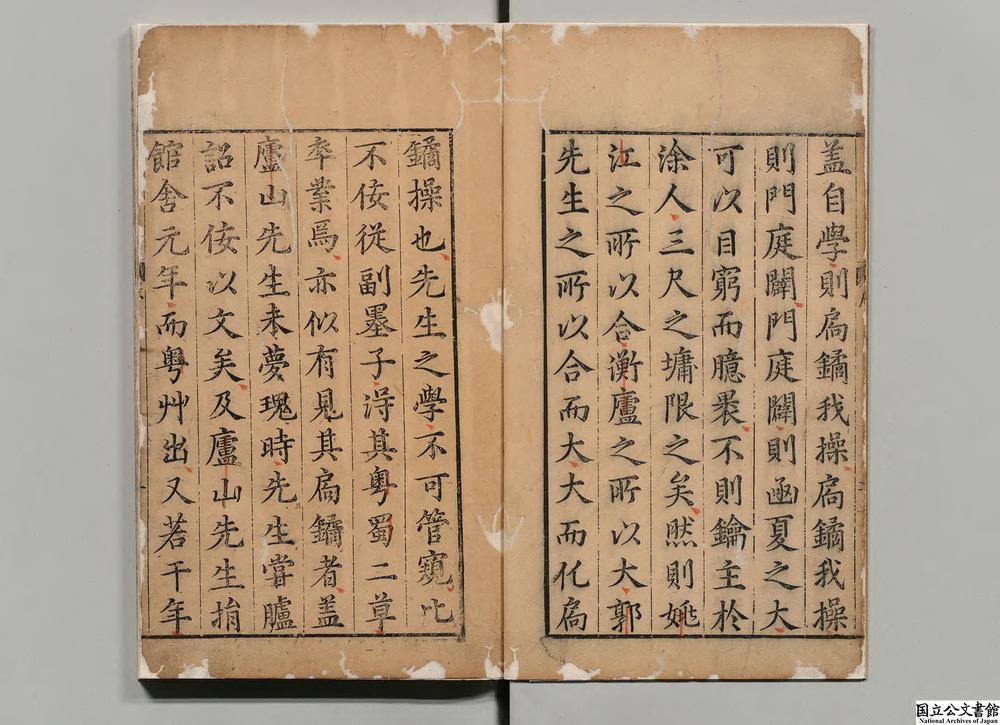 盖自學則扃鐍我操扃鐍我操
則門庭闢門庭闢則凾夏之大
可以目窮而臆褁不則鑰主於
涂人三尺之墉限之矣然則姚
江之所以合衡廬之所以大郭
先生之所以合而大大而化扃
鐍操也先生之學不可管窺比
不佞從副墨子浔其粤蜀二草
卒業焉亦似有見其扃鐍者盖
廬山先生未夢瑰時先生嘗臚
詔不佞以文矣及廬山先生捐
館舍元年而粤艸出又若干年
国立公文書館
National Archives of Japan